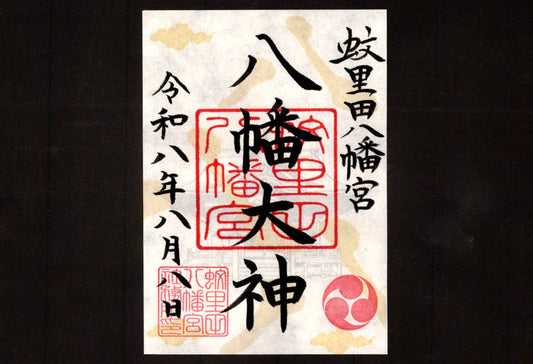 蚊里田八幡宮
八幡大神
令和八年八月八日
蚊里田
八幡宮
蚊里田
八幡宮